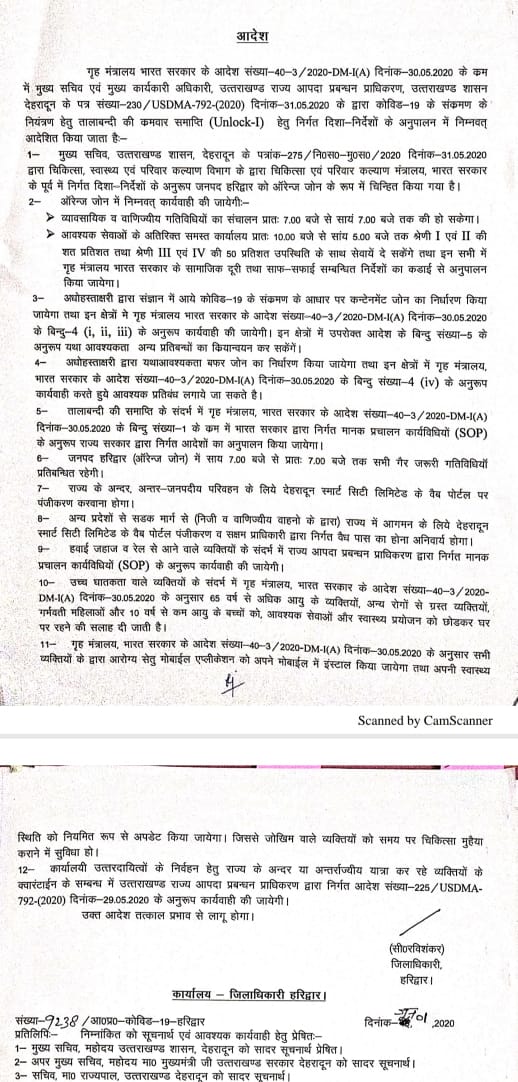 आदेश
गृह मंत्रालय भारत सरकार के आदेश संख्या–40–3/2020-DM-I(A) दिनांक–30.05.2020 के कम
में मुख्य सचिव एवं मुख्य कार्यकारी अधिकारी, उत्तराखण्ड राज्य आपदा प्रबन्धन प्राधिकरण, उत्तराखण्ड शासन
देहरादून के पत्र संख्या–230/USDMA-792-(2020) दिनांक–31.05.2020 के द्वारा कोविड–19 के संकमण के
नियंत्रण हेतु तालाबन्दी की कमवार समाप्ति (Unlock-I) हेतु निर्गत दिशा–निर्देशों के अनुपालन में निम्नवत्
आदेशित किया जाता हैः–
1– मुख्य सचिव, उत्तराखण्ड शासन, देहरादून के पत्रांक–275/नि0स0–मु0स0/2020 दिनांक–31.05.2020
द्वारा चिकित्सा, स्वास्थ्य एवं परिवार कल्याण विभाग के द्वारा चिकित्सा एवं परिवार कल्याण मंत्रालय, भारत सरकार
के पूर्व में निर्गत दिशा–निर्देशों के अनुरूप जनपद हरिद्वार को ऑरेन्ज जोन के रूप में चिन्हित किया गया है।
2– ऑरेंज जोन में निम्नवत् कार्यवाही की जायेगीः–
➤ व्यावसायिक व वाणिज्यीय गतिविधियों का संचालन प्रातः 7.00 बजे से सायं 7.00 बजे तक की हो सकेगा।
➤ आवश्यक सेवाओं के अतिरिक्त समस्त कार्यालय प्रातः 10.00 बजे से सांय 5.00 बजे तक श्रेणी I एवं II की
शत प्रतिशत तथा श्रेणी III एवं IV की 50 प्रतिशत उपस्थिति के साथ सेवायें दे सकेंगे तथा इन सभी में
गृह मंत्रालय भारत सरकार के सामाजिक दूरी तथा साफ–सफाई सम्बन्धित निर्देशों का कडाई से अनुपालन
किया जायेगा।
3– अधोहस्ताक्षरी द्वारा संज्ञान में आये कोविड–19 के संकमण के आधार पर कन्टेनमेंट जोन का निर्धारण किया
जायेगा तथा इन क्षेत्रों मे गृह मंत्रालय भारत सरकार के आदेश संख्या–40–3/2020-DM-I(A) दिनांक–30.05.2020
के बिन्दु–4 (i, ii, iii) के अनुरूप कार्यवाही की जायेगी। इन क्षेत्रों में उपरोक्त आदेश के बिन्दु संख्या–5 के
अनुरूप यथा आवश्यकता अन्य प्रतिबन्धों का कियान्वयन कर सकेंगें।
4– अधोहस्ताक्षरी द्वारा यथाआवश्यकता बफर जोन का निर्धारण किया जायेगा तथा इन क्षेत्रों में गृह मंत्रालय,
भारत सरकार के आदेश संख्या–40–3/2020-DM-I(A) दिनांक–30.05.2020 के बिन्दु संख्या–4 (iv) के अनुरूप
कार्यवाही करते हुये आवश्यक प्रतिबंध लगाये जा सकते है।
5– तालाबन्दी की समाप्ति के संदर्भ में गृह मंत्रालय, भारत सरकार के आदेश संख्या–40–3/2020-DM-I(A)
दिनांक–30.05.2020 के बिन्दु संख्या–1 के कम में भारत सरकार द्वारा निर्गत मानक प्रचालन कार्यविधियों (SOP)
के अनुरूप राज्य सरकार द्वारा निर्गत आदेशों का अनुपालन किया जायेगा।
6– जनपद हरिद्वार (ऑरेंन्ज जोन) में साय 7.00 बजे से प्रातः 7.00 बजे तक सभी गैर जरूरी गतिविधियॉ
प्रतिबन्धित रहेगी।
7– राज्य के अन्दर, अन्तर–जनपदीय परिवहन के लिये देहरादून स्मार्ट सिटी लिमिटेड के वैब पोर्टल पर
पंजीकरण करवाना होगा।
8– अन्य प्रदेशों से सडक मार्ग से (निजी व वाणिज्यीय वाहनो के द्वारा) राज्य में आगमन के लिये देहरादून
स्मार्ट सिटी लिमिटेड के वैब पोर्टल पंजीकरण व सक्षम प्राधिकारी द्वारा निर्गत वैध पास का होना अनिवार्य होगा।
9– हवाई जहाज व रेल से आने वाले व्यक्तियों के संदर्भ में राज्य आपदा प्रबन्धन प्राधिकरण द्वारा निर्गत मानक
प्रचालन कार्यविधियों (SOP) के अनुरूप कार्यवाही की जायेगी।
10– उच्च घातकता वाले व्यक्तियों के संदर्भ में गृह मंत्रालय, भारत सरकार के आदेश संख्या–40–3/2020-
DM-I(A) दिनांक–30.05.2020 के अनुसार 65 वर्ष से अधिक आयु के व्यक्तियों, अन्य रोगों से ग्रस्त व्यक्तियों,
गर्भवती महिलाओं और 10 वर्ष से कम आयु के बच्चों को, आवश्यक सेवाओं और स्वास्थ्य प्रयोजन को छोडकर घर
पर रहने की सलाह दी जाती है।
11– गृह मंत्रालय, भारत सरकार के आदेश संख्या–40–3/2020-DM-I(A) दिनांक–30.05.2020 के अनुसार सभी
व्यक्तियों के द्वारा आरोग्य सेतु मोबाईल एप्लीकेशन को अपने मोबाईल में इंस्टाल किया जायेगा तथा अपनी स्वास्थ्य
Scanned by CamScanner
स्थिति को नियमित रूप से अपडेट किया जायेगा। जिससे जोखिम वाले व्यक्तियों को समय पर चिकित्सा मुहैया
कराने में सुविधा हो।
12– कार्यालयी उत्तरदायित्वों के निर्वहन हेतु राज्य के अन्दर या अन्तर्राज्यीय यात्रा कर रहे व्यक्तियों के
क्वारंटाईन के सम्बन्ध में उत्तराखण्ड राज्य आपदा प्रबन्धन प्राधिकरण द्वारा निर्गत आदेश संख्या–225/USDMA-
792-(2020) दिनांक–29.05.2020 के अनुरूप कार्यवाही की जायेगी।
उक्त आदेश तत्काल प्रभाव से लागू होगा।
(सी0रविशंकर)
जिलाधिकारी,
हरिद्वार।
कार्यालय – जिलाधिकारी हरिद्वार।
संख्या–9238/आ0प्र0–कोविड–19–हरिद्वार दिनांक– 01 ,2020
प्रतिलिपिः– निम्नांकित को सूचनार्थ एवं आवश्यक कार्यवाही हेतु प्रेषितः–
1– मुख्य सचिव, महोदय उत्तराखण्ड शासन, देहरादून को सादर सूचनार्थ प्रेषित।
2– अपर मुख्य सचिव, महोदय मा0 मुख्यमंत्री जी उत्तराखण्ड सरकार देहरादून को सादर सूचनार्थ।
3– सचिव, मा0 राज्यपाल, उत्तराखण्ड देहरादून को सादर सूचनार्थ।